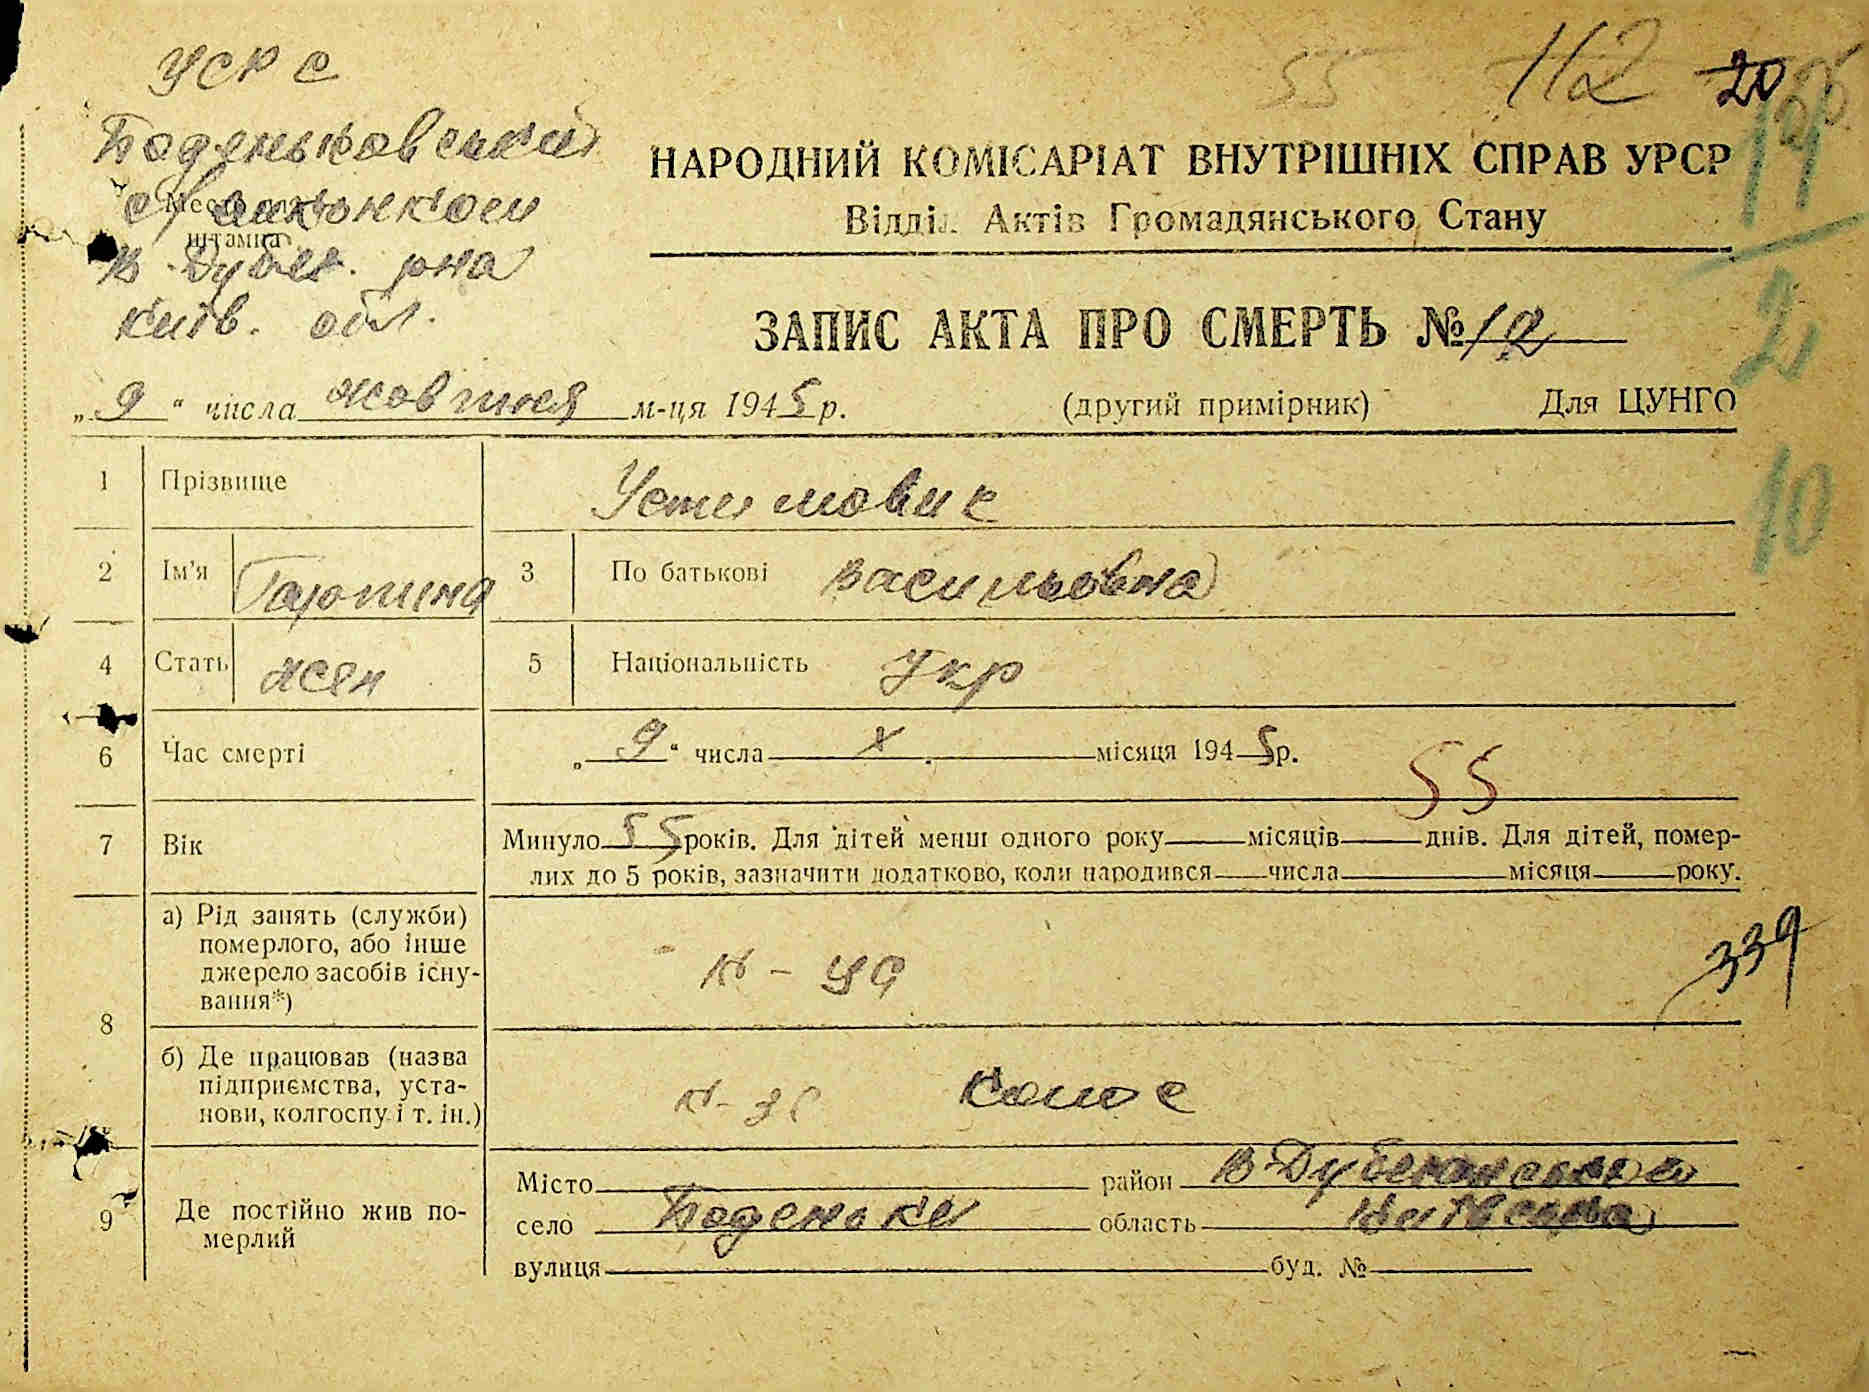 УСРС
55 112 20
Боденьковський
Місце для
штампа
в Дубеч. р на
Київ. обл.
НАРОДНИЙ КОМІСАРІАТ ВНУТРІШНІХ СПРАВ УРСР
Відділ Актів Громадянського Стану
ЗАПИС АКТА ПРО СМЕРТЬ № 12
„ 9 “ числа жовтня м-ця 1945 р. (другий примірник) Для ЦУНГО
2
10
1 Прізвище Устимовик
2 Ім'я Гарпина 3 По батькові Васильовна
4 Стать жен 5 Національність Укр
6 Час смерті „ 9 “ числа X місяця 1945 р.
55
7 Вік Минуло 55 років. Для дітей менш одного року місяців днів. Для дітей, помер-
лих до 5 років, зазначити додатково, коли народився числа місяця року.
8 а) Рід занять (служби)
померлого, або інше
джерело засобів існу-
вання*)
339
б) Де працював (назва
підприємства, уста-
нови, колгоспу і т. ін.)
9 Де постійно жив по-
мерлий
Місто район В-Дубечанський
село Боденьки область Київська
вулиця буд. №